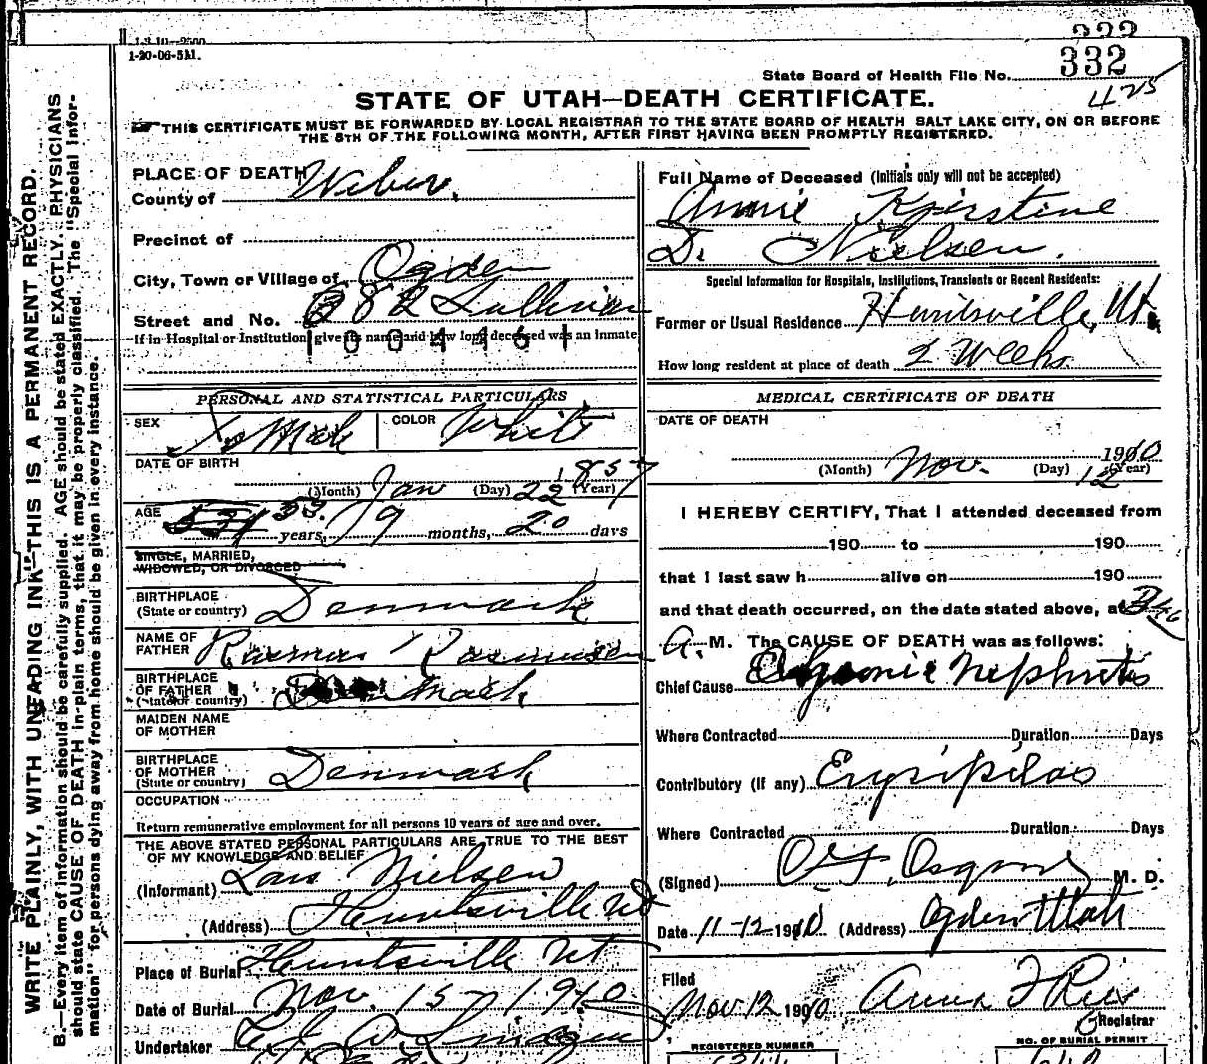 332
1-20-06-5M.
State Board of Health File No. 332
425
STATE OF UTAH—DEATH CERTIFICATE.
THIS CERTIFICATE MUST BE FORWARDED BY LOCAL REGISTRAR TO THE STATE BOARD OF HEALTH SALT LAKE CITY, ON OR BEFORE
THE 5TH OF THE FOLLOWING MONTH, AFTER FIRST HAVING BEEN PROMPTLY REGISTERED.
WRITE PLAINLY, WITH UNFADING INK—THIS IS A PERMANENT RECORD.
B.—Every item of information should be carefully supplied. AGE should be stated EXACTLY. PHYSICIANS
should state CAUSE OF DEATH in plain terms, that it may be properly classified. The "Special Infor-
mation" for persons dying away from home should be given in every instance.
PLACE OF DEATH
County of Weber.
Precinct of
City, Town or Village of Ogden
Street and No. 282 Sullivan
If in Hospital or Institution, give its name and how long deceased was an inmate
1004461
PERSONAL AND STATISTICAL PARTICULARS
SEX COLOR White
DATE OF BIRTH
(Month) Jan (Day) 22 (Year) 1857
AGE 53 years, 9 months, 20 days
SINGLE, MARRIED,
WIDOWED, OR DIVORCED
BIRTHPLACE
(State or country) Denmark
NAME OF
FATHER Rasmus Rasmussen
BIRTHPLACE
OF FATHER
(State or country) Denmark
MAIDEN NAME
OF MOTHER
BIRTHPLACE
OF MOTHER
(State or country) Denmark
OCCUPATION
Return remunerative employment for all persons 10 years of age and over.
THE ABOVE STATED PERSONAL PARTICULARS ARE TRUE TO THE BEST
OF MY KNOWLEDGE AND BELIEF
(Informant) Lars Nielsen
(Address) Huntsville Ut
Place of Burial Huntsville Ut
Date of Burial Nov. 15 1910
Undertaker
Full Name of Deceased (Initials only will not be accepted)
Annie Kjirstine
D. Nielsen.
Special Information for Hospitals, Institutions, Transients or Recent Residents:
Former or Usual Residence Huntsville, Ut.
How long resident at place of death 2 Weeks.
MEDICAL CERTIFICATE OF DEATH
DATE OF DEATH
(Month) Nov. (Day) 12 1910 (Year)
I HEREBY CERTIFY, That I attended deceased from
190 to 190
that I last saw h alive on 190
and that death occurred, on the date stated above, at
A. M. The CAUSE OF DEATH was as follows:
Chief Cause Chronic Nephritis
Where Contracted Duration Days
Contributory (if any) Erysipilas
Where Contracted Duration Days
(Signed) Osgood M. D.
Date 11-12-1910 (Address) Ogden Utah
Filed
Nov 12 1910 Anna F Rice
Registrar
REGISTERED NUMBER NO. OF BURIAL PERMIT